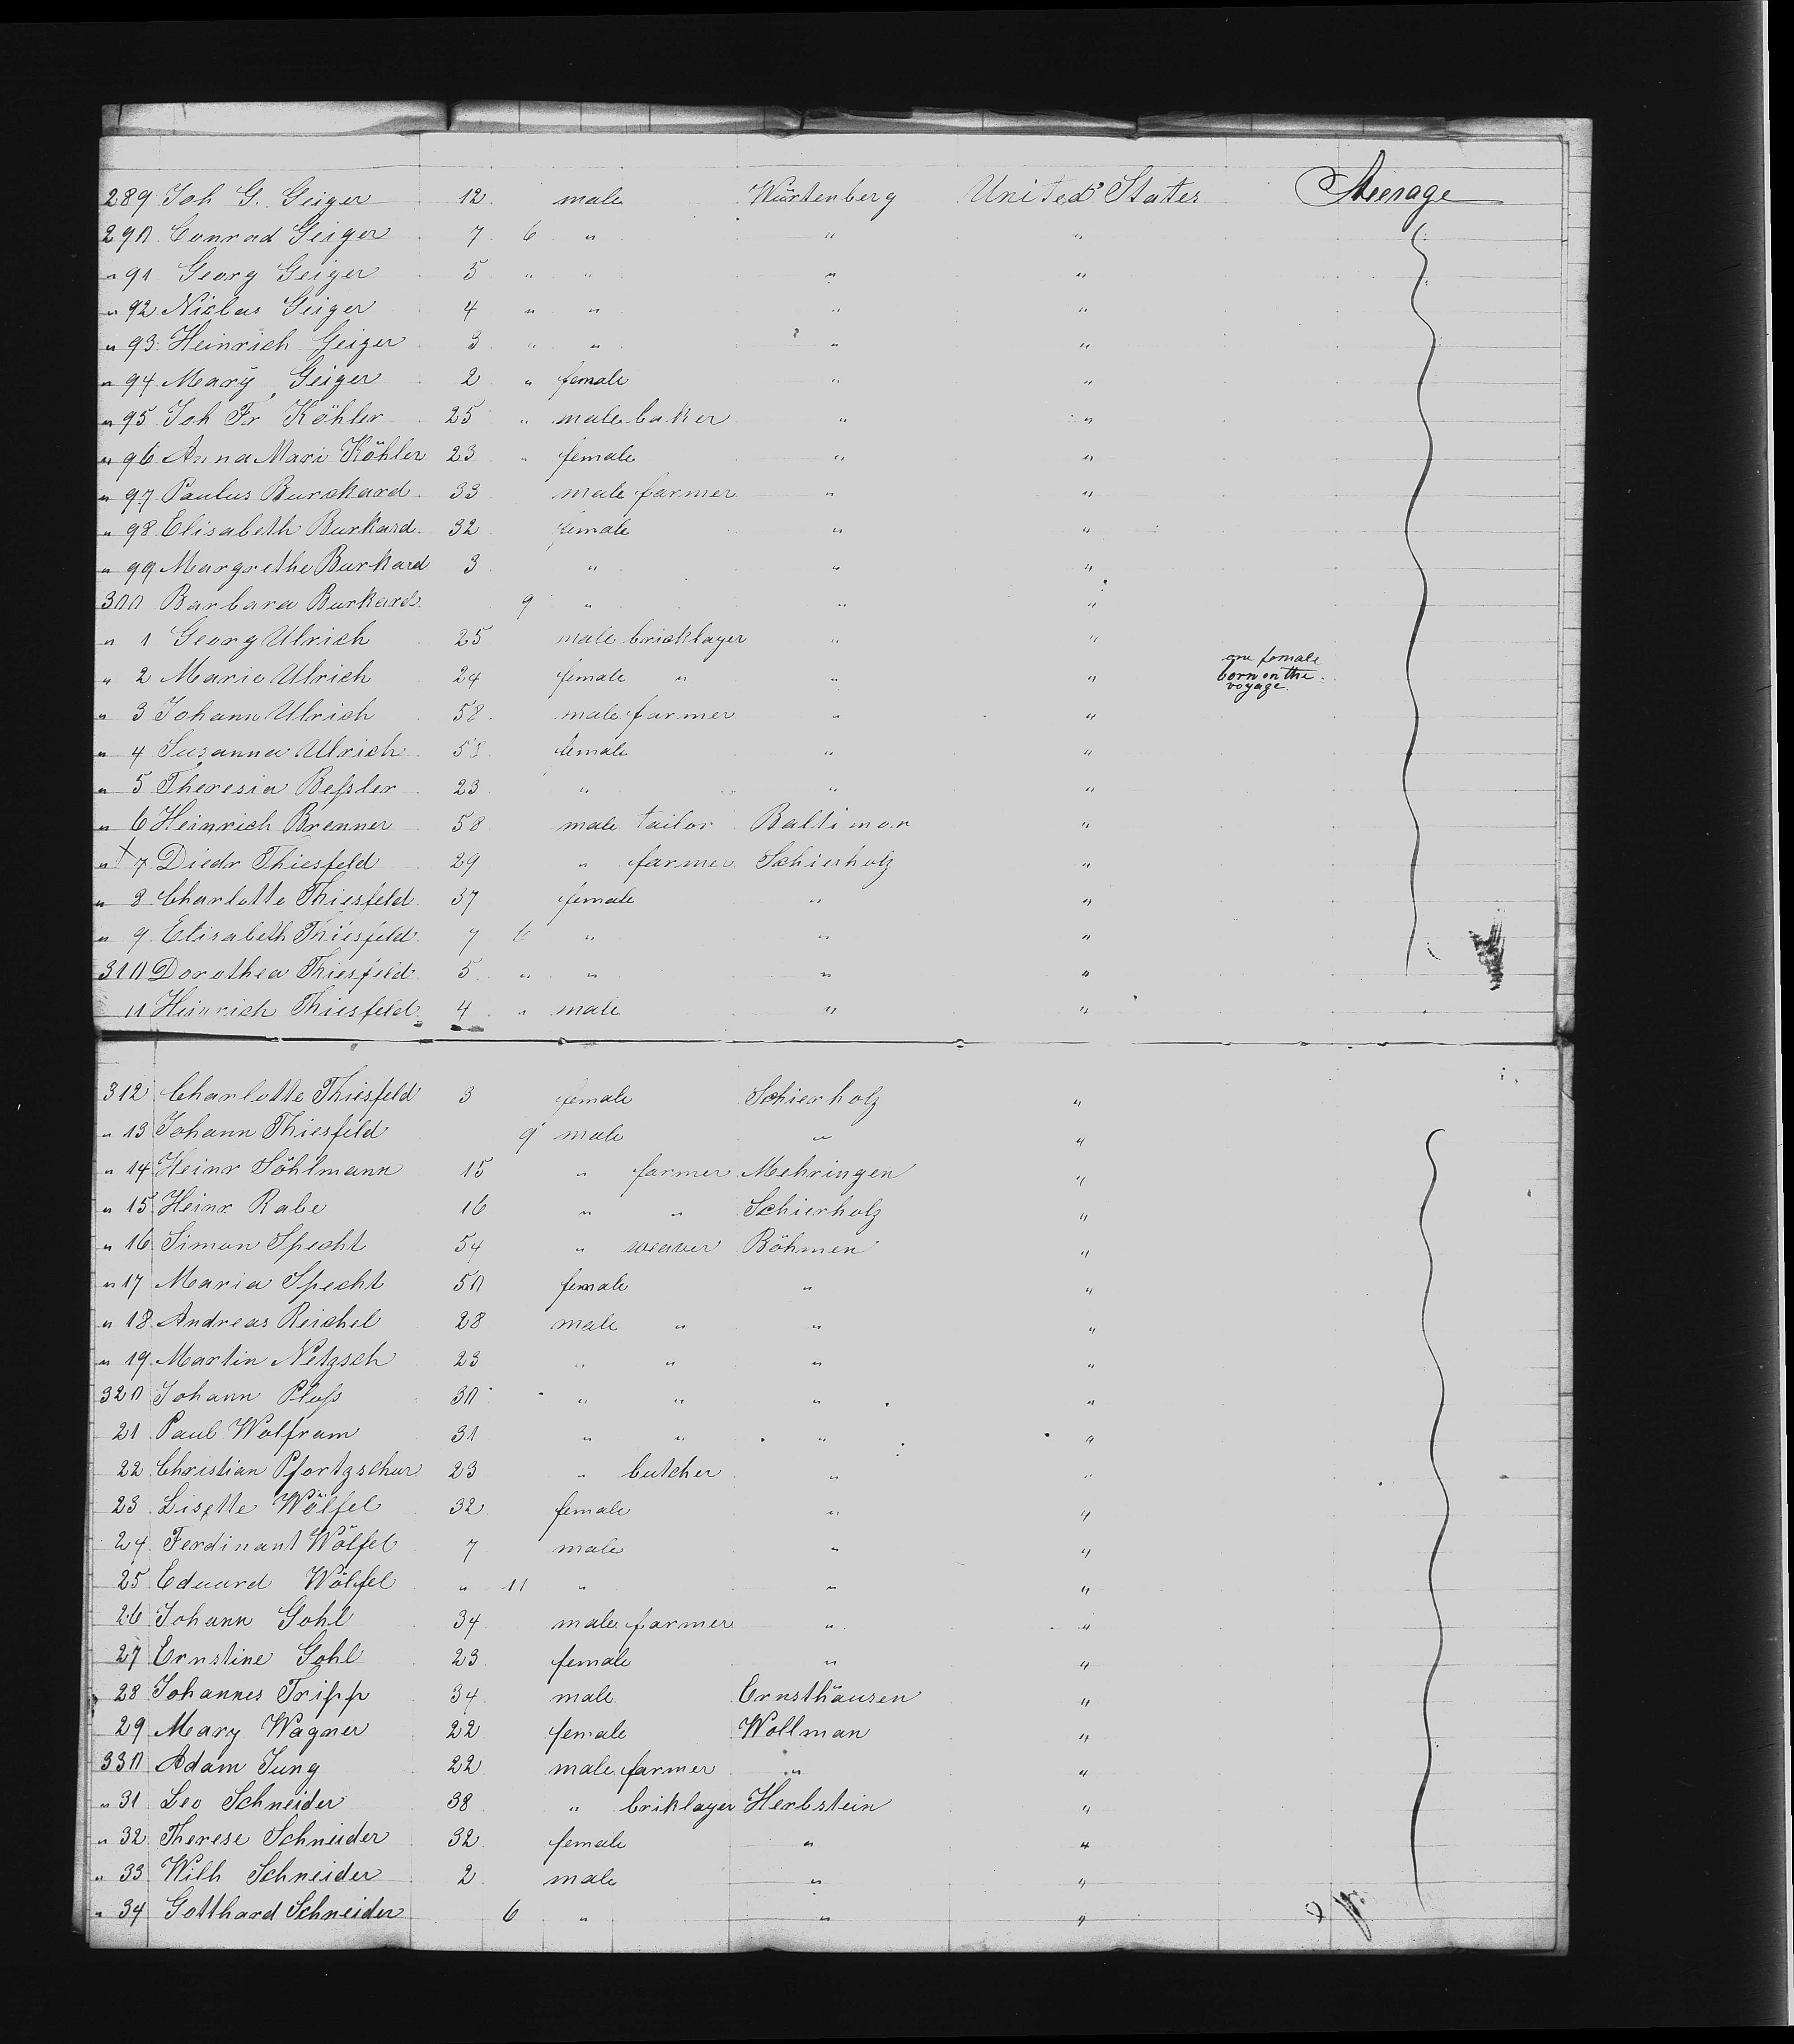 289 Joh G. Geiger 12 male Würtenberg United States Steerage
290 Conrad Geiger 7 6 " " "
" 91 Georg Geiger 5 " " " "
" 92 Niclas Geiger 4 " " " "
" 93 Heinrich Geiger 3 " " " "
" 94 Mary Geiger 2 " female " "
" 95 Joh Fr Köhler 25 " male baker " "
" 96 Anna Mari Köhler 23 " female " "
" 97 Paulus Burckard 33 male farmer " "
" 98 Elisabeth Burkard 32 female " "
" 99 Margrethe Burkard 3 " " "
300 Barbara Burkard 9 " " "
" 1 Georg Ulrich 25 male bricklayer " "
" 2 Marie Ulrich 24 female " " " one female born on the voyage.
" 3 Johann Ulrich 58 male farmer " "
" 4 Susanna Ulrich 58 female " "
" 5 Theresia Beßler 23 " " "
" 6 Heinrich Brenner 58 male tailor Baltimor "
" + 7 Diedr Thiesfeld 29 " farmer Schierholz "
" 8 Charlotte Thiesfeld 37 female " "
" 9 Elisabeth Thiesfeld 7 6 " " "
310 Dorothea Thiesfeld 5 " " " "
11 Heinrich Thiesfeld 4 " male " "
312 Charlotte Thiesfeld 3 female Schierholz "
" 13 Johann Thiesfeld 9 male " "
" 14 Heinr Söhlmann 15 " farmer Mehringen "
" 15 Heinr Rabe 16 " " Schierholz "
" 16 Simon Specht 54 " weaver Böhmen "
" 17 Maria Specht 50 female " "
" 18 Andreas Reichel 28 male " " "
" 19 Martin Netzsch 23 " " " "
320 Johann Pluß 30 " " " "
21 Paul Wolfram 31 " " " "
22 Christian Pfortzschur 23 " butcher " "
23 Lisette Wölfel 32 female " "
24 Ferdinant Wölfel 7 male " "
25 Eduard Wölfel " 11 " " "
26 Johann Gohl 34 male farmer " "
27 Ernstine Gohl 23 female " "
28 Johannes Tripp 34 male Ernsthausen "
29 Mary Wagner 22 female Wollman "
330 Adam Jung 22 male farmer " "
" 31 Leo Schneider 38 " briklayer Herbstein "
" 32 Therese Schneider 32 female " "
" 33 Wilh Schneider 2 male " "
" 34 Gotthard Schneider 6 " " "